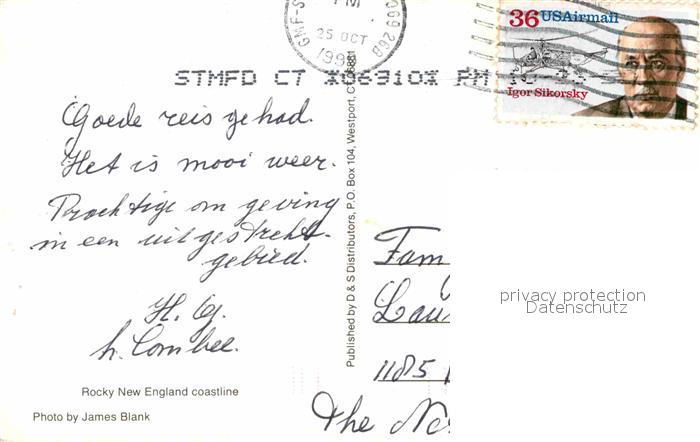 GMF-S
PM
25 OCT
199
069 26B
STMFD CT *06910* PM
36 USAirmail
Igor Sikorsky
Goede reis gehad.
Het is mooi weer.
Prachtige om geving
in een uitgestrekt-
gebied.
H. G.
h. Combee.
Rocky New England coastline
Photo by James Blank
Published by D & S Distributors, P.O. Box 104, Westport, CT
Fam
1185
The Ne
privacy protection
Datenschutz